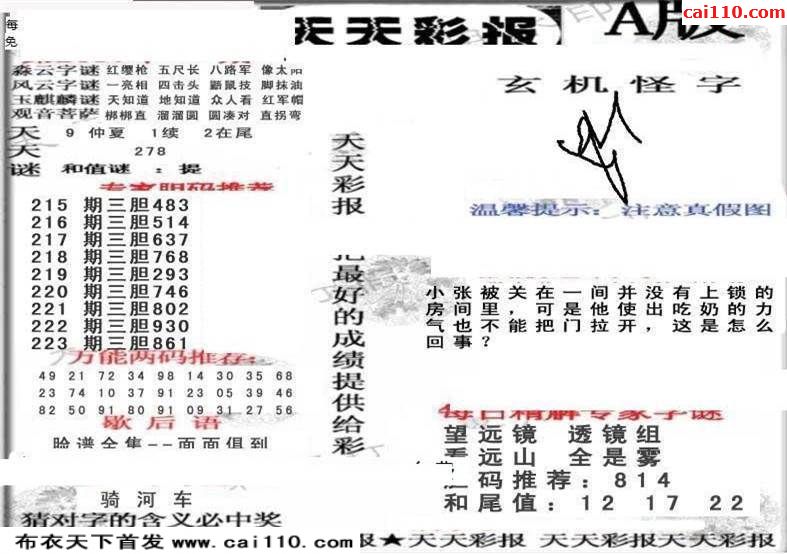 每
免
天天彩报
A版
cai110.com
森云字谜 红缨枪 五尺长 八路军 像太阳
风云字谜 一亮相 四击头 鼯鼠技 脚抹油
玉麒麟谜 天知道 地知道 众人看 红军帽
观音菩萨 梆梆直 溜溜圆 圆凑对 直拐弯
天 9 仲夏 1续 2在尾
天 278
谜 和值谜 : 提
专家胆码推荐
215 期三胆483
216 期三胆514
217 期三胆637
218 期三胆768
219 期三胆293
220 期三胆746
221 期三胆802
222 期三胆930
223 期三胆861
万能两码推荐:
49 21 72 34 98 14 30 35 68
23 74 10 37 91 23 05 39 46
82 50 91 80 91 09 31 27 56
歇后语
脸谱全集--面面俱到
骑河车
猜对字的含义必中奖
天天彩报
把最好的成绩提供给彩
玄机怪字
温馨提示: 注意真假图
小张被关在一间并没有上锁的
房间里，可是他使出吃奶的力
气也不能把门拉开，这是怎么
回事？
每日精解专家字谜
望远镜 透镜组
看远山 全是雾
码推荐: 814
和尾值: 12 17 22
布衣天下首发 www.cai110.com 彩报★天天彩报 天天彩报 天天彩报